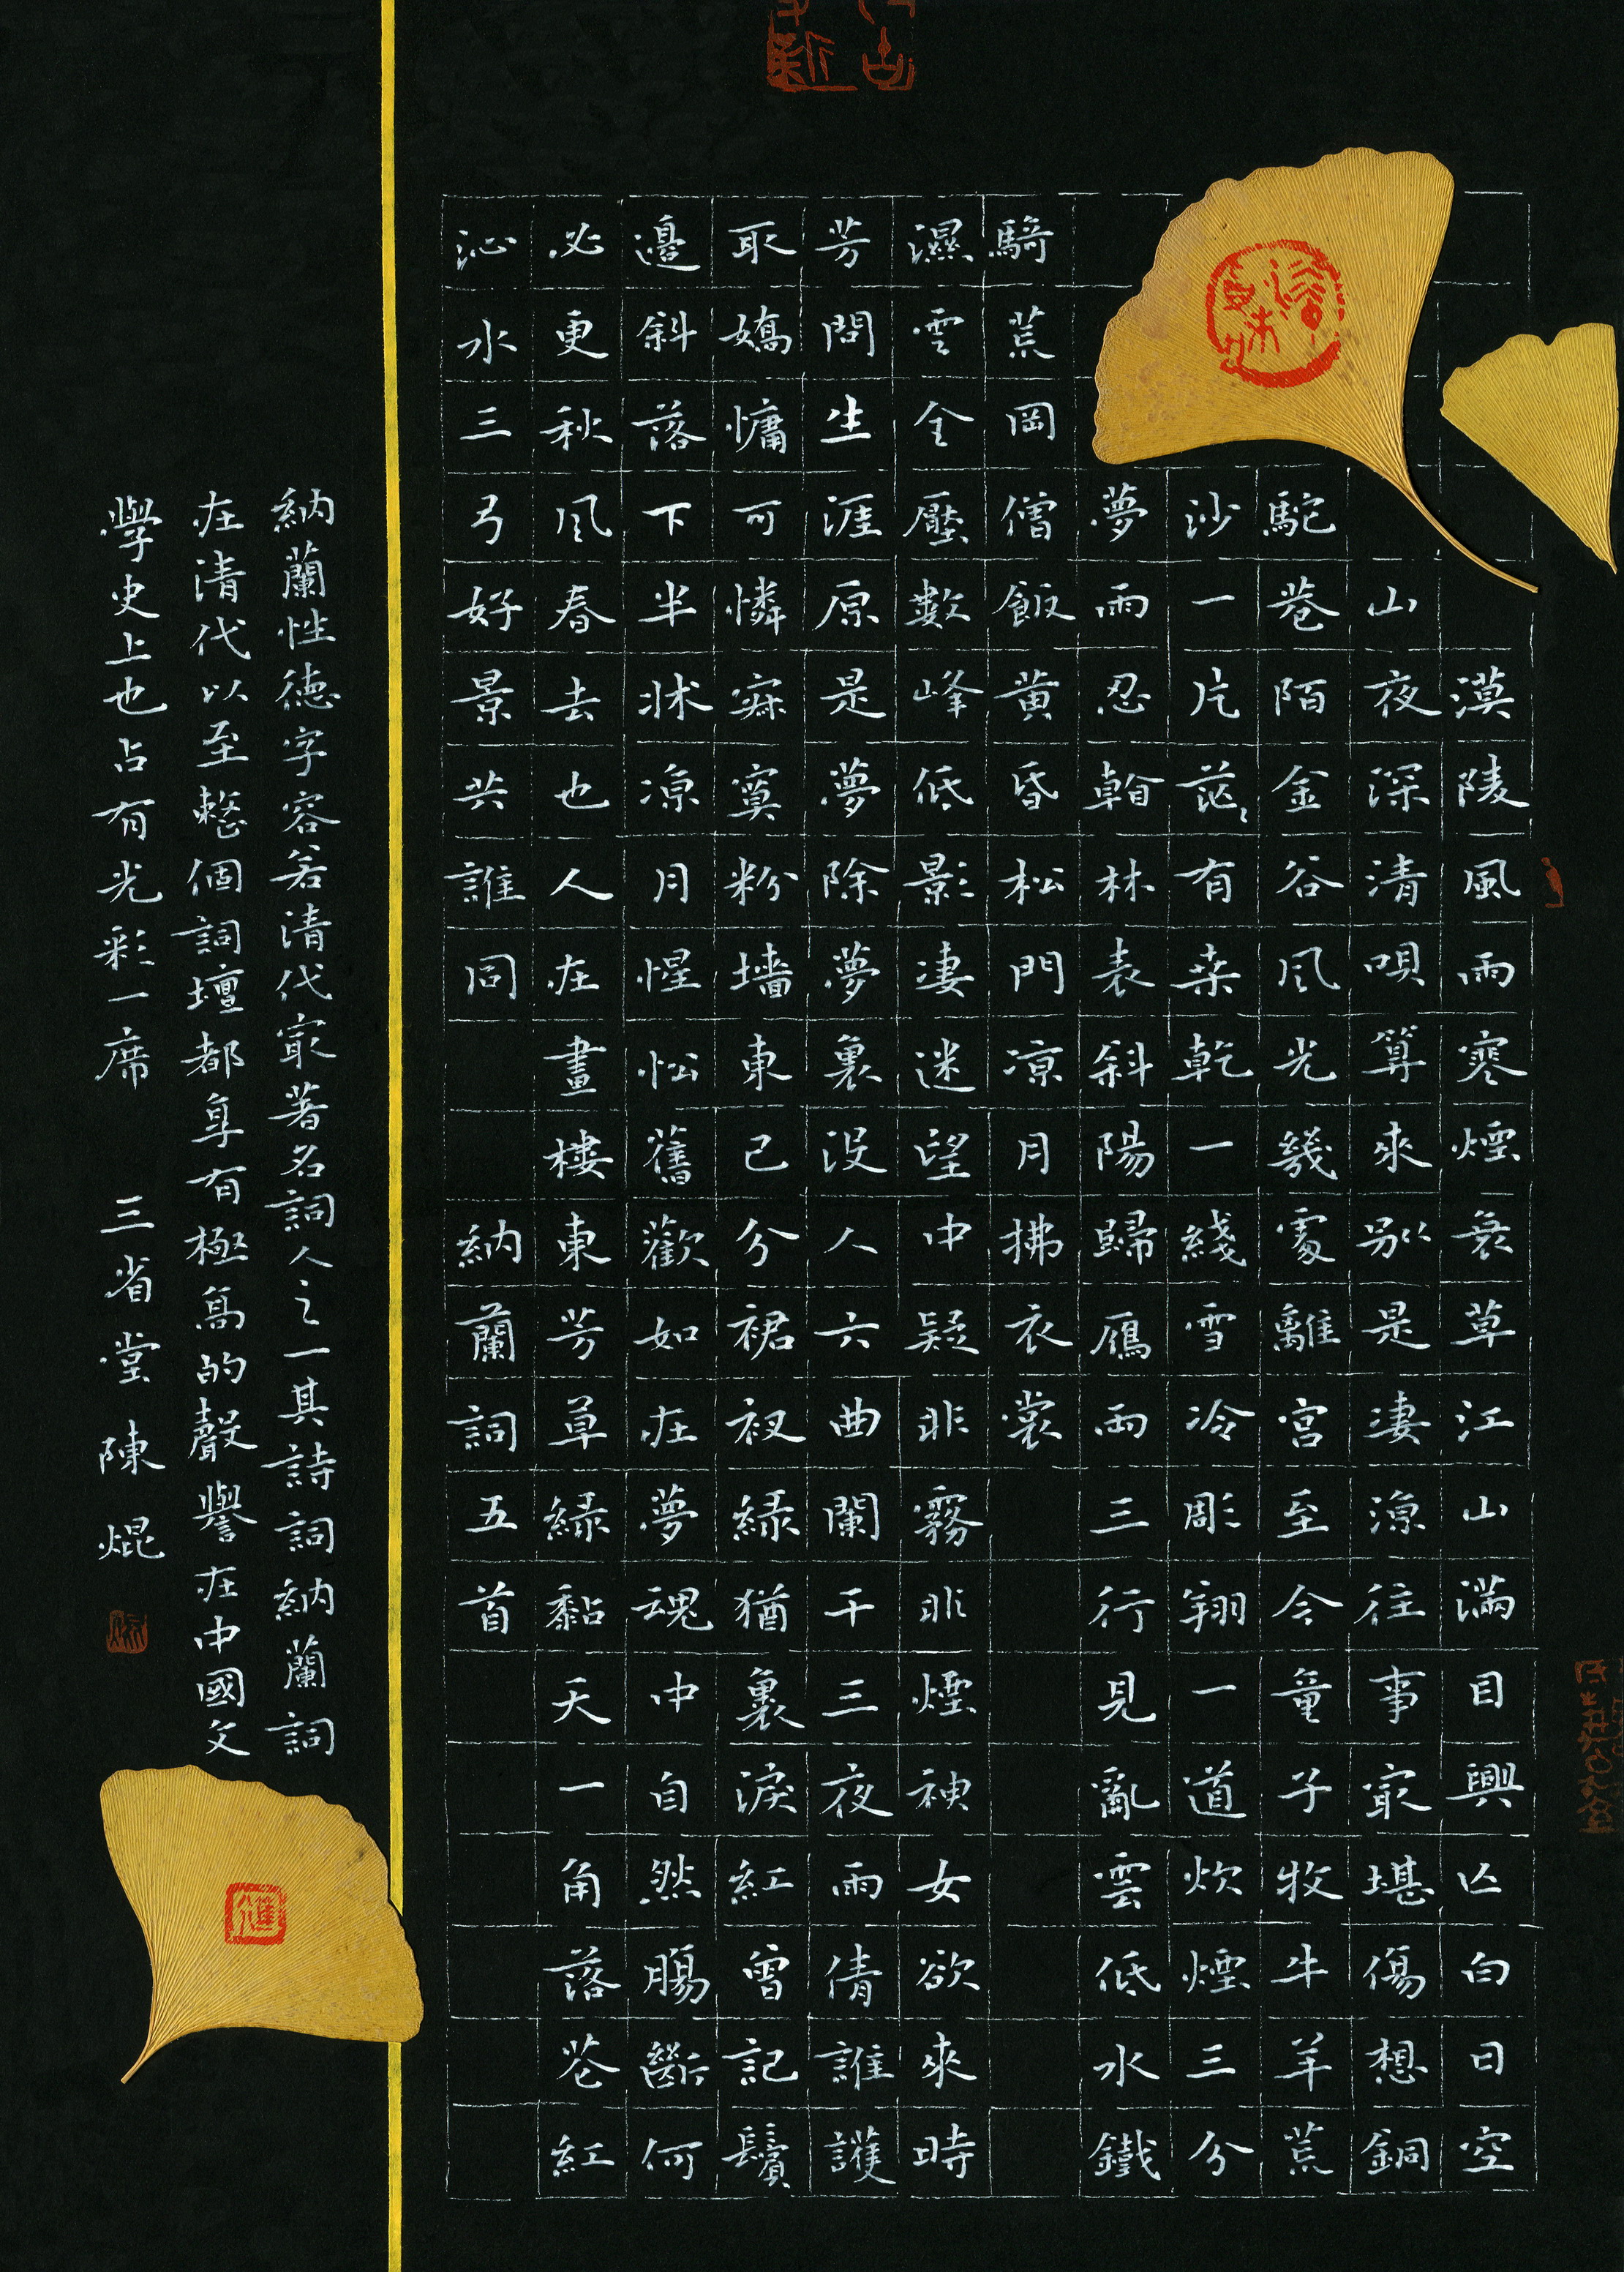 漠陵風雨寒煙衰草江山滿目興亡白日空
山夜深清唄算來別是淒涼往事最堪傷想銅
駝巷陌金谷風光幾處離宮至今童子牧牛羊荒
沙一片茫〻有桑乾一綫雪冷彫翔一道炊煙三分
夢雨忍翰林表斜陽歸鴈兩三行見亂雲低水鐵
騎荒岡僧飯黃昏松門涼月拂衣裳
濕雲全壓數峰低影淒迷望中疑非霧非煙神女欲來時
芳問生涯原是夢除夢裏沒人六曲闌干三夜雨倩誰護
取嬌慵可憐寂寞粉墻東已分裙衩綠猶裹淚紅曾記鬢
邊斜落下半牀涼月惺忪舊歡如在夢魂中自然腸斷何
必更秋風春去也人在畫樓東芳草綠黏天一角落花紅
沁水三弓好景共誰同 納蘭詞五首
納蘭性德字容若清代最著名詞人之一其詩詞納蘭詞
在清代以至整個詞壇都享有極高的聲譽在中國文
學史上也占有光彩一席 三省堂 陳焜